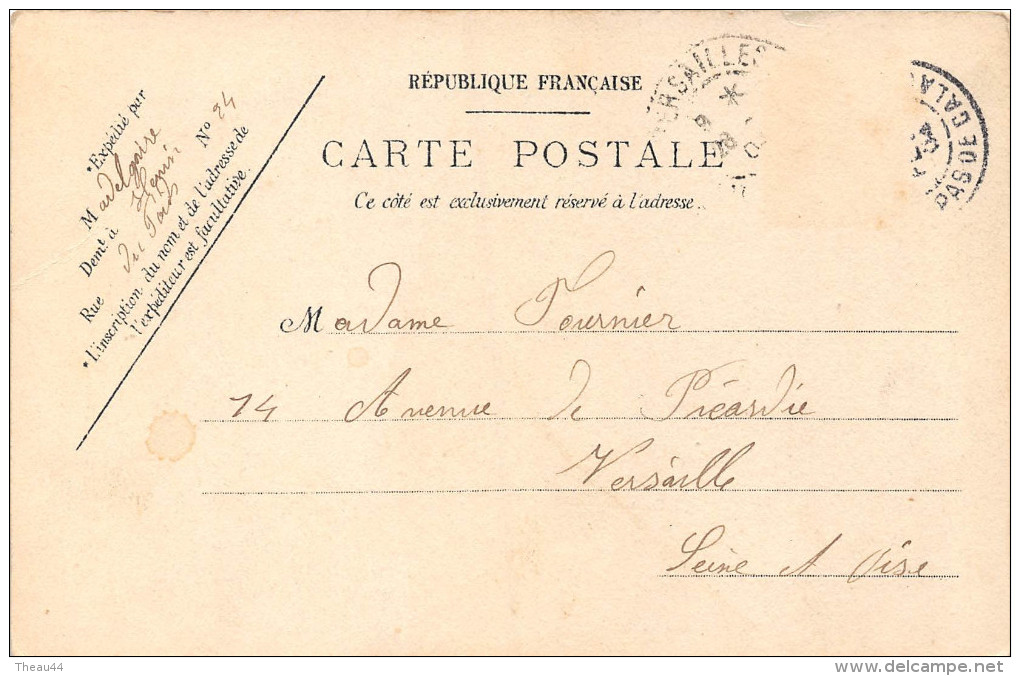 RÉPUBLIQUE FRANÇAISE
CARTE POSTALE
Ce côté est exclusivement réservé à l'adresse.
Expédié par
M
Demt à
Rue du N° 24
L'inscription du nom et de l'adresse de
l'expéditeur est facultative.
VERSAILLES
PAS DE CALA
Madame Fournier
14 Avenue de Picardie
Versaille
Seine et Oise
Theau44
www.delcampe.net